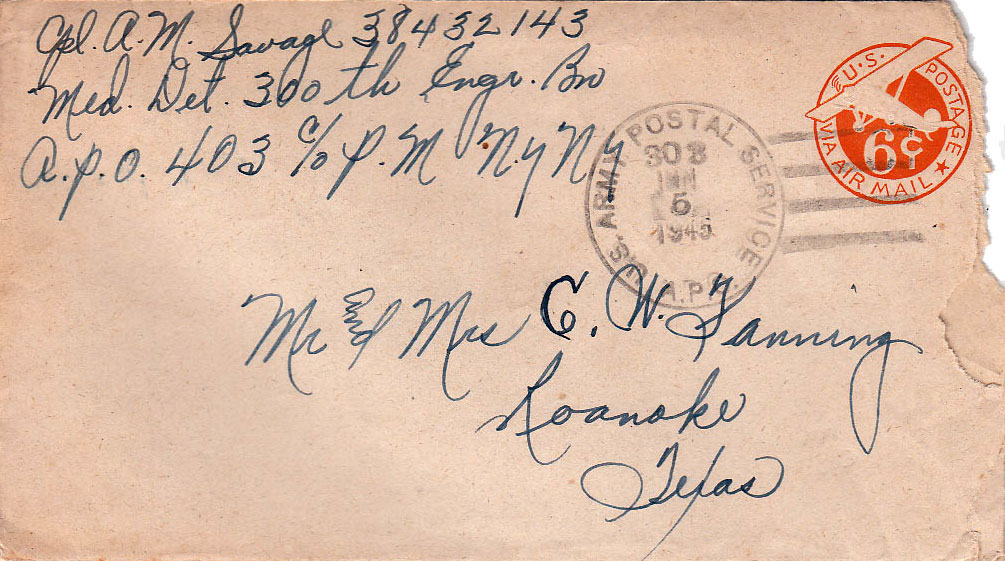 Cpl. A.M. Savage 38432143
Med. Det. 300th Engr. Bn
A.P.O. 403 c/o P.M N.Y N.Y
U.S. POSTAGE
6¢
VIA AIR MAIL
U.S. ARMY POSTAL SERVICE
A.P.O.
303
JAN
5
1945
Mr and Mrs C. W. Fanning
Roanoke
Texas